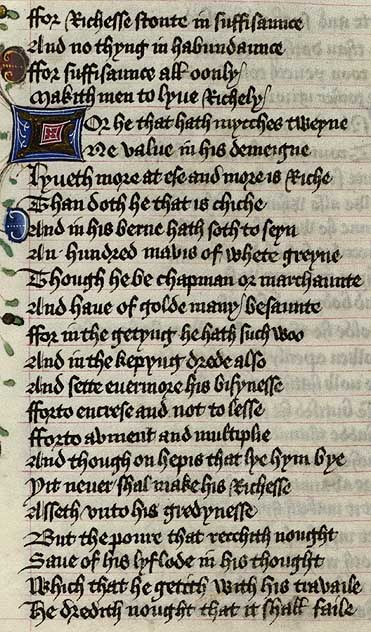 ffor Richesse stonte in suffisaunce
And no thyng in habundaunce
ffor suffisaunce all oonly
Makith men to lyue Richely
For he that hath mycches tweyne
Ne value in his demeigne
Lyueth more at ese and more is Riche
Than doth he that is chiche
And in his berne hath soth to seyn
An hundred mavis of whete greyne
Though he be chapman or marchaunte
And haue of golde many besaunte
ffor in the getyng he hath such woo
And in the kepyng drede also
And sette euermore his bisynesse
fforto encrese and not to lesse
fforto aument and multiplie
And though on hepis that lye hym bye
Yit neuer shal make his Richesse
Asseth vnto his gredynesse
But the poure that recchith nought
Saue of his lyflode in his thought
Which that he getith with his travaile
He dredith nought that it shall faile